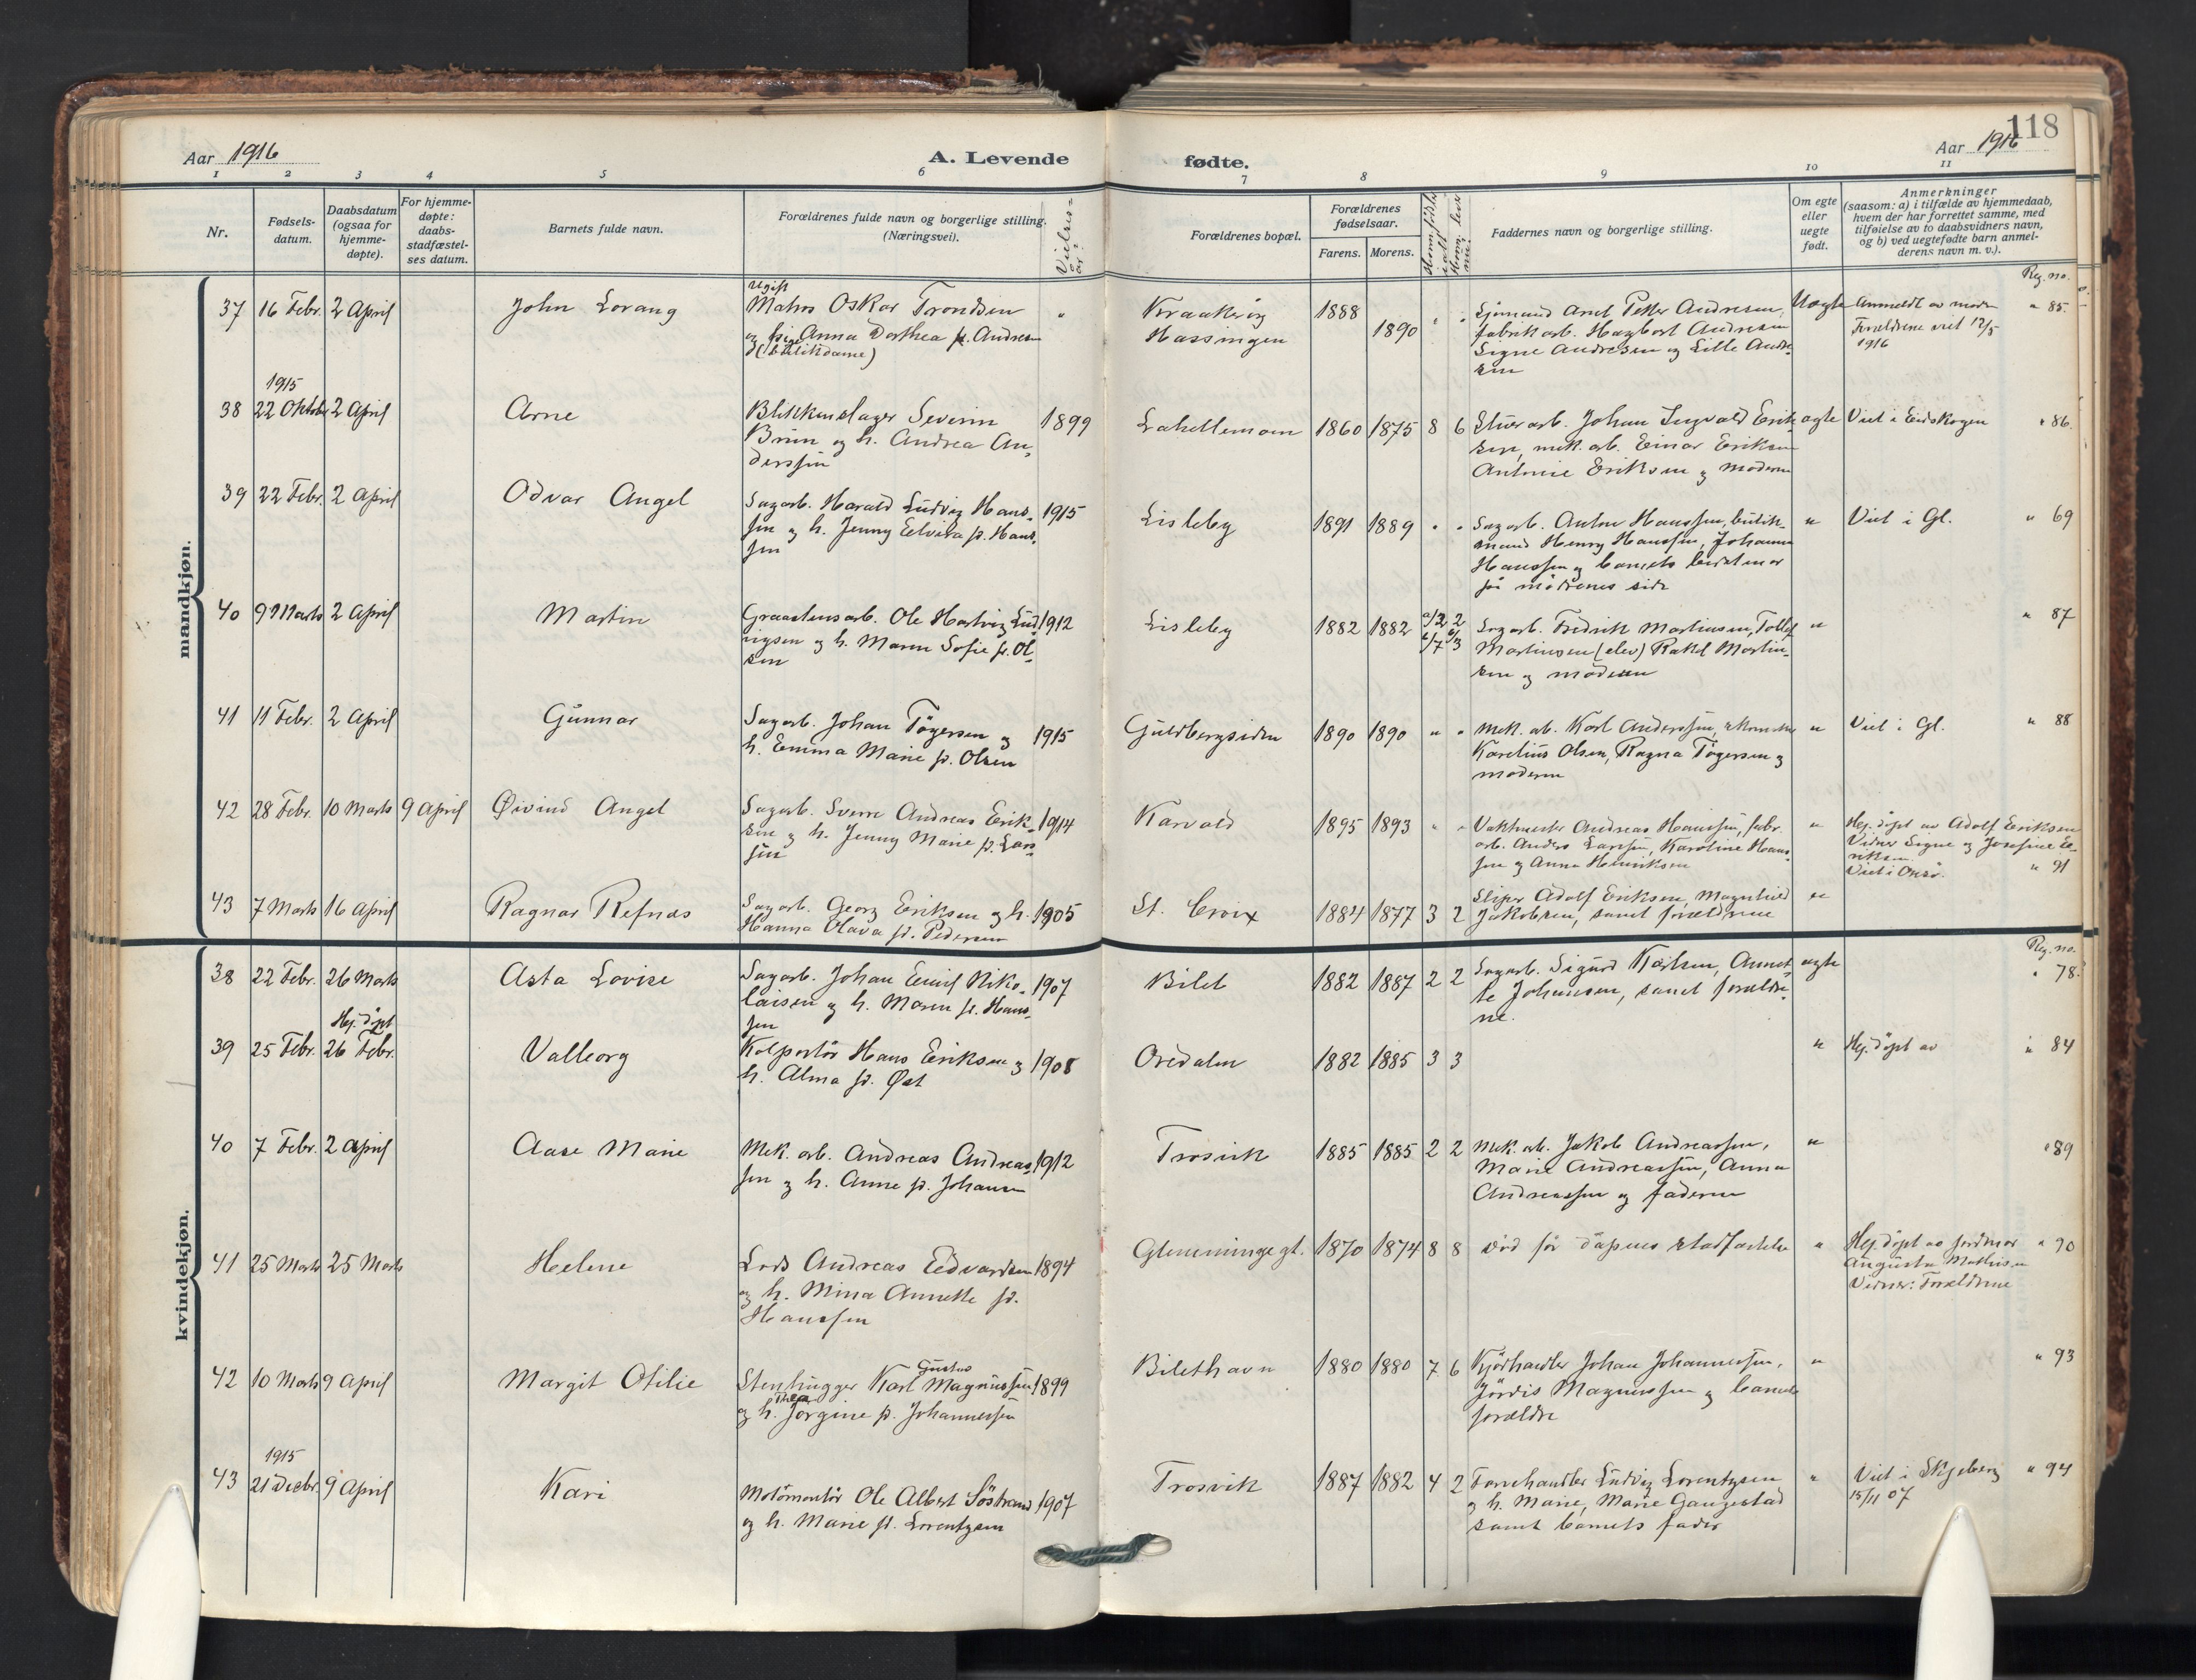 118
Aar 1916
A. Levende
fødte.
Aar 1916
1 2 3 4 5 6 7 8 9 10 11
Nr.
Fødsels-
datum.
Daabsdatum
(ogsaa for
hjemme-
døpte).
For hjemme-
døpte:
daabs-
stadfæstel-
ses datum.
Barnets fulde navn.
Forældrenes fulde navn og borgerlige stilling.
(Næringsvei).
Vielses-
aar?
Forældrenes bopæl.
Forældrenes
fødselsaar.
Farens. Morens.
Faddernes navn og borgerlige stilling.
Om egte
eller
uegte
født.
Anmerkninger
(saasom: a) i tilfælde av hjemmedaab,
hvem der har forrettet samme, med
tilføielse av to daabsvidners navn,
og b) ved uegtefødte barn anmel-
derens navn m. v.).
mandkjøn.
Reg. no.
37 16 Febr. 2 April John Lorang
Ugift
Matros Oskar Trondsen
og pige Anna Dorthea f. Andresen
(butikdame)
Kraakerøy
Hassingen
1888 1890
Sjømand Arnt Petter Andresen,
fabrikarb. Hagbart Andresen
Signe Andresen og Lille Andre-
sen
Uegte
Anmeldt av moder
Forældrene viet 12/5
1916
" 85.
1915
38 22 Oktobr 2 April Arne
Blikkenslager Severin
Brun og h. Andrea An-
derssen
1899
Lahellemoen 1860 1875 8 6
Stuerarb. Johan Ingvald Erik-
sen, mek. arb. Einar Eriksen
Antonie Eriksen og moderen
egte Viet i Eidskogen " 86.
39 22 Febr. 2 April Odvar Angel
Sagarb. Harald Ludvig Hans-
sen og h. Jenny Eelvira f. Hans-
sen
1915
Lisleby 1891 1889 " "
Sagarb. Anton Hanssen, butik-
mand Henry Hanssen, Johanne
Hanssen og barnets bedstemor
på mødrenes side
" Viet i Gl. " 69
40 9 Marts 2 April Martin
Graastensarb. Ole Hartvig Lud-
vigsen og h. Maren Sofie f. Ol-
sen
1912
Lisleby 1882 1882 a/2 2
b/7 b/3
Sagarb. Fredrik Martinsen, Tollef
Martinsen (elev) Rakel Martin-
sen og moderen
" " 87
41 11 Febr. 2 April Gunnar
Sagarb. Johan Tøgersen og
h. Emma Marie f. Olsen
1915
Guldbergsiden 1890 1890 " "
Mek. arb. Karl Anderssen,
Karelius Olsen, Ragna Tøgersen og
moderen
" Viet i Gl. " 88
42 28 Febr. 10 Marts 9 April Øivind Angel
Sagarb. Sverre Andreas Erik-
sen og h. Jenny Marie f. Lars-
sen
1914
Karvald 1895 1893 " "
Vaktmester Andreas Hanssen, fabr.
arb. Anders Larssen, Karoline Hans-
sen og Anna Henriksen
"
Hej. døpt av Adolf Eriksen
Vidner Signe og Josefine Er-
riksen.
Viet i Onsø. " 91
43 7 Marts 16 April Ragnar Refnæs
Sagarb. Georg Eriksen og h.
Hanna Olava f. Pedersen
1905
St. Croix 1884 1877 3 2
Sliper Adolf Eriksen, Magnhild
Jakobsen, samt forældrene
"
kvindekjøn.
Reg. no.
38 22 Febr. 26 Marts Asta Lovise
Sagarb. Johan Emil Niko-
laisen og h. Maren f. Hans-
sen
1907
Bilet 1882 1887 2 2
Sagarb. Sigurd Karlsen, Annet-
te Johansen, samt forældre-
ne.
egte " 78.
Hej. døpt
39 25 Febr. 26 Febr. Valborg
Kolportør Hans Eriksen og
h. Alma f. Øst
1908
Oredalen 1882 1885 3 3
" Hej. døpt av " 84
40 7 Febr. 2 April Aase Marie
Mek. arb. Andreas Andreas-
sen og h. Anne f. Johansen
1912
Trosvik 1885 1885 2 2
Mek. arb. Jakob Andreassen,
Marie Andreassen, Anna
Andreassen og faderen
" " 89
41 25 Marts 25 Marts Helene
Lods Andreas Edvardsen
og h. Mina Annette f.
Hanssen
1894
Glemminge gt. 1870 1874 8 8
død før dåpens stadfæstelse
"
Hej. døpt av jordmor
Augusta Mathisen
Vidner: Forældrene
" 90
42 10 Marts 9 April Margit Otilie
Gustav
Stenhugger Karl Magnussen
Thea
og h. Jørgine f. Johannessen
1899
Bilethavn 1880 1880 7 6
Kjødhandler Johan Johannessen,
Hjørdis Magnussen og barnets
forældre
" " 93
1915
43 21 Decbr. 9 April Kari
Motormontør Ole Albert Søstrand
og h. Marie f. Lorentzen
1907
Trosvik 1887 1882 4 2
Farvehandler Ludvig Lorentzsen
og h. Marie, Marie Gaugestad
samt barnets fader
"
Viet i Skjeberg
15/11 07
" 94